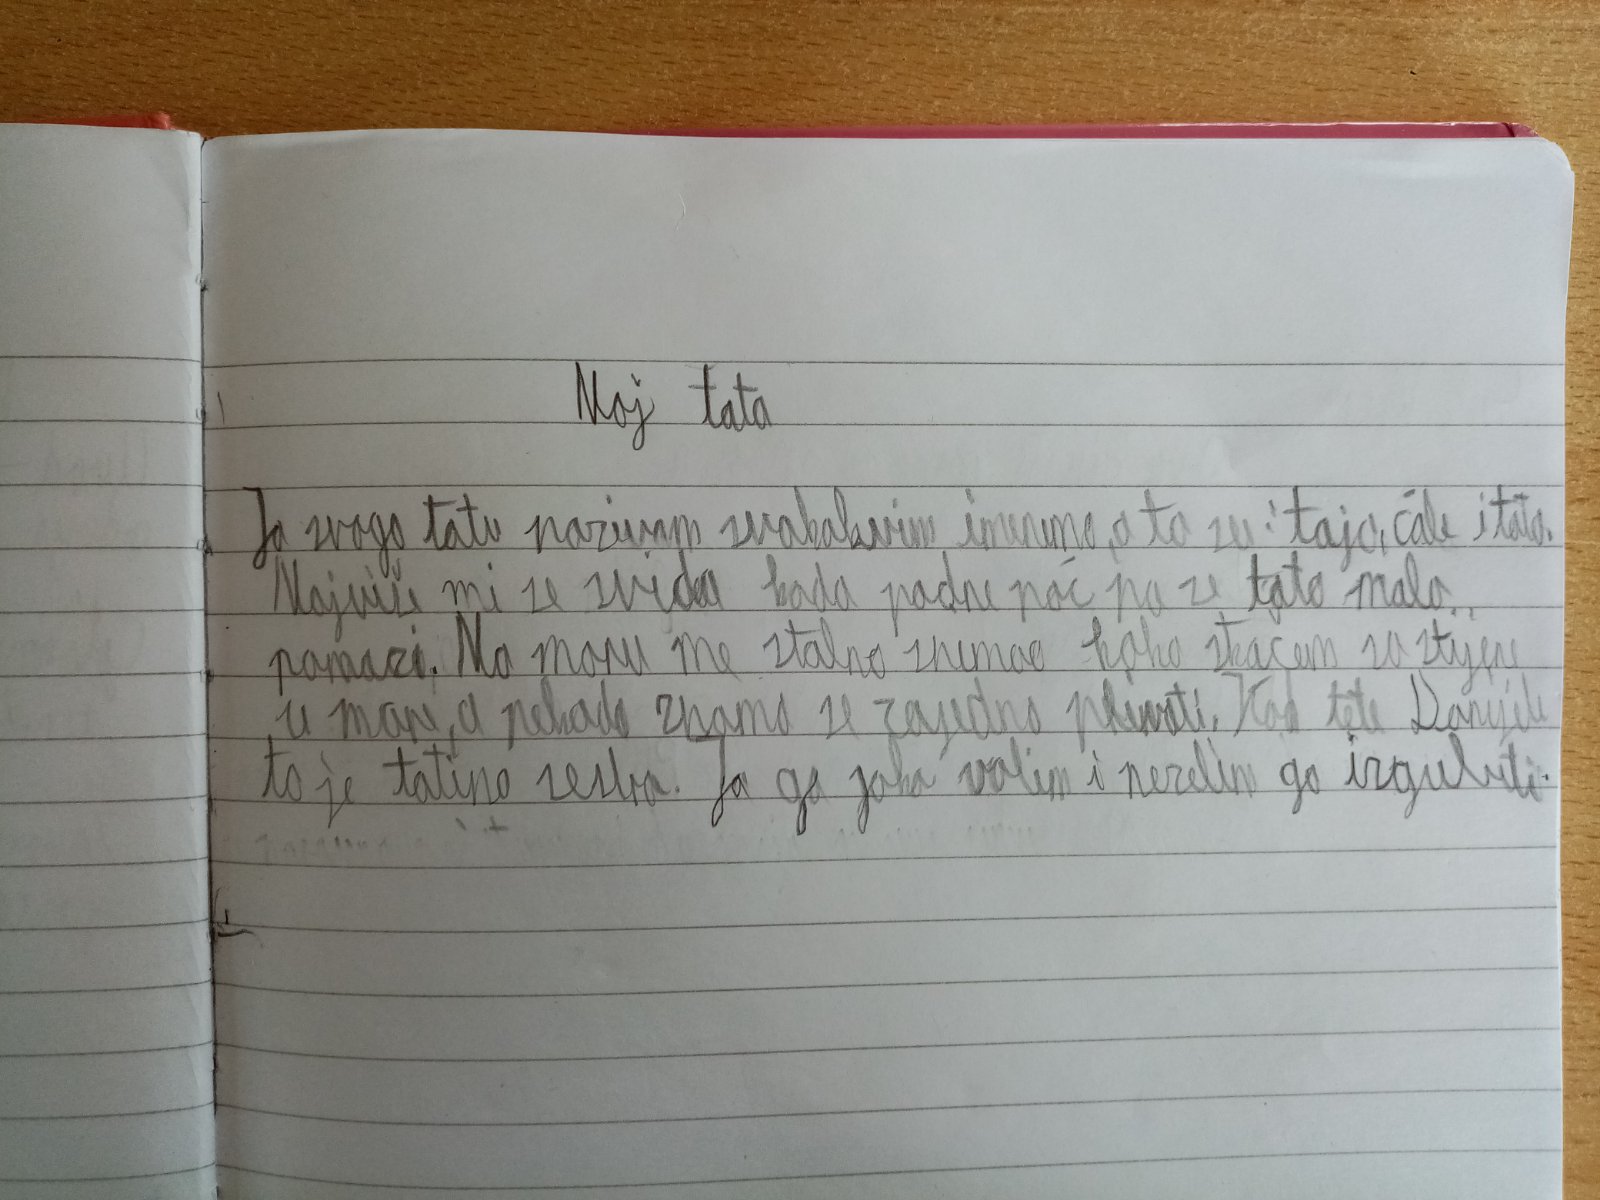 Moj tata
Ja svoga tatu nazivam svakakvim imenima, a to su: tajo, ćale i tata.
Najviše mi se sviđa kada padne noć pa se tata malo
pomazi. Na moru me stalno snimao kako skaćem sa stijene
u more, a nekada znamo se zajedno plivati. Kod tete Danijele
to je tatina sestra. Ja ga jako volim i neželim ga izgubiti.